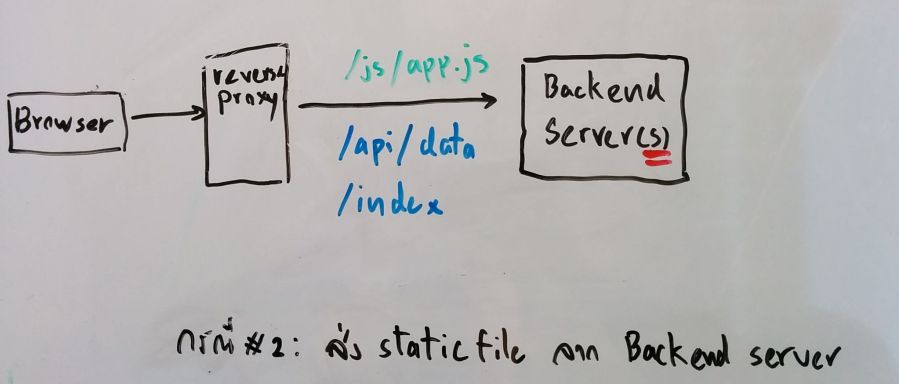 Browser
reverse
proxy
/js/app.js
/api/data
/index
Backend
Server(s)
กรณี #2: ส่ง static file จาก Backend server